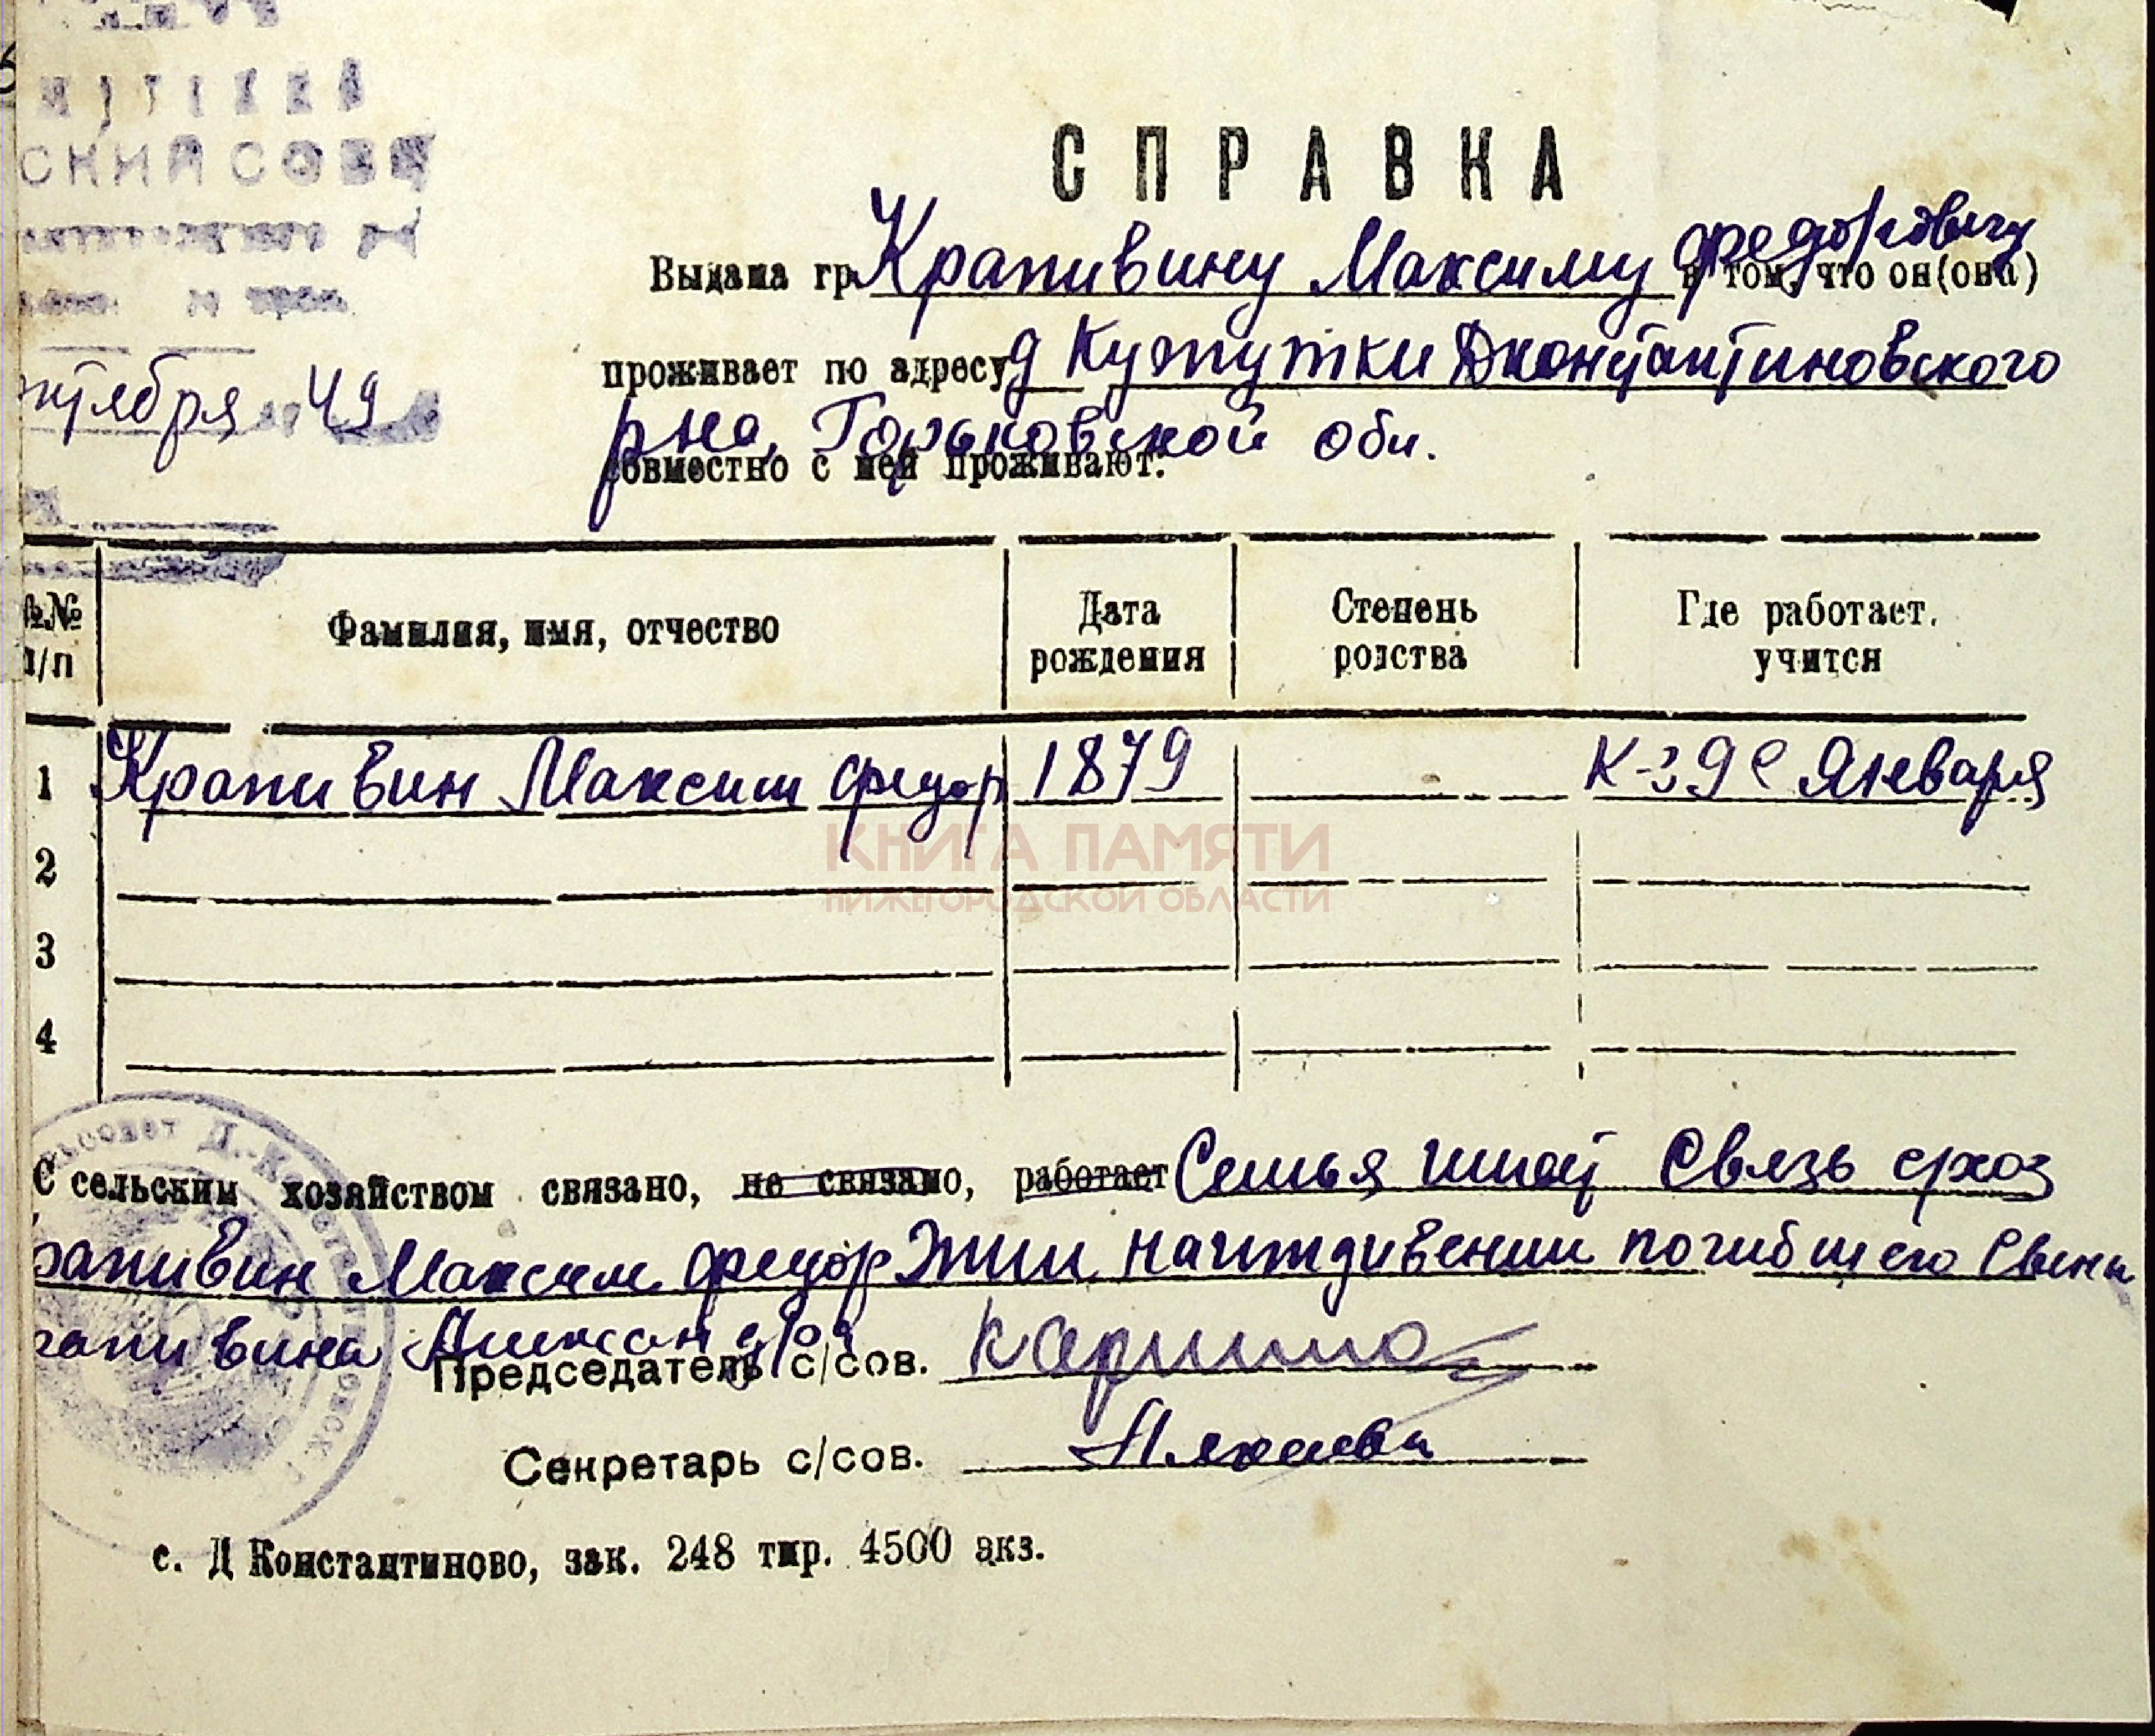 СКИЙ СОВЕТ
нтября 49
СПРАВКА
Выдана гр. Крапивину Максиму Федоровичу в том, что он(она)
проживает по адресу д Кужутки Дконстантиновского
рна, Горьковской обл.
совместно с ней проживают:
№№ п/п
Фамилия, имя, отчество
Дата рождения
Степень родства
Где работает, учится
1 Крапивин Максим Федор 1879 К-з 9е Января
2
3
4
КНИГА ПАМЯТИ
НИЖЕГОРОДСКОЙ ОБЛАСТИ
С сельским хозяйством связано, не связано, работает Семья имеет Связь схоз
рапивин Максим Федор Жил на иждивении погибшего Сына
рапивина Александра
Председатель с/сов.
Секретарь с/сов.
с. Д Константиново, зак. 248 тир. 4500 экз.